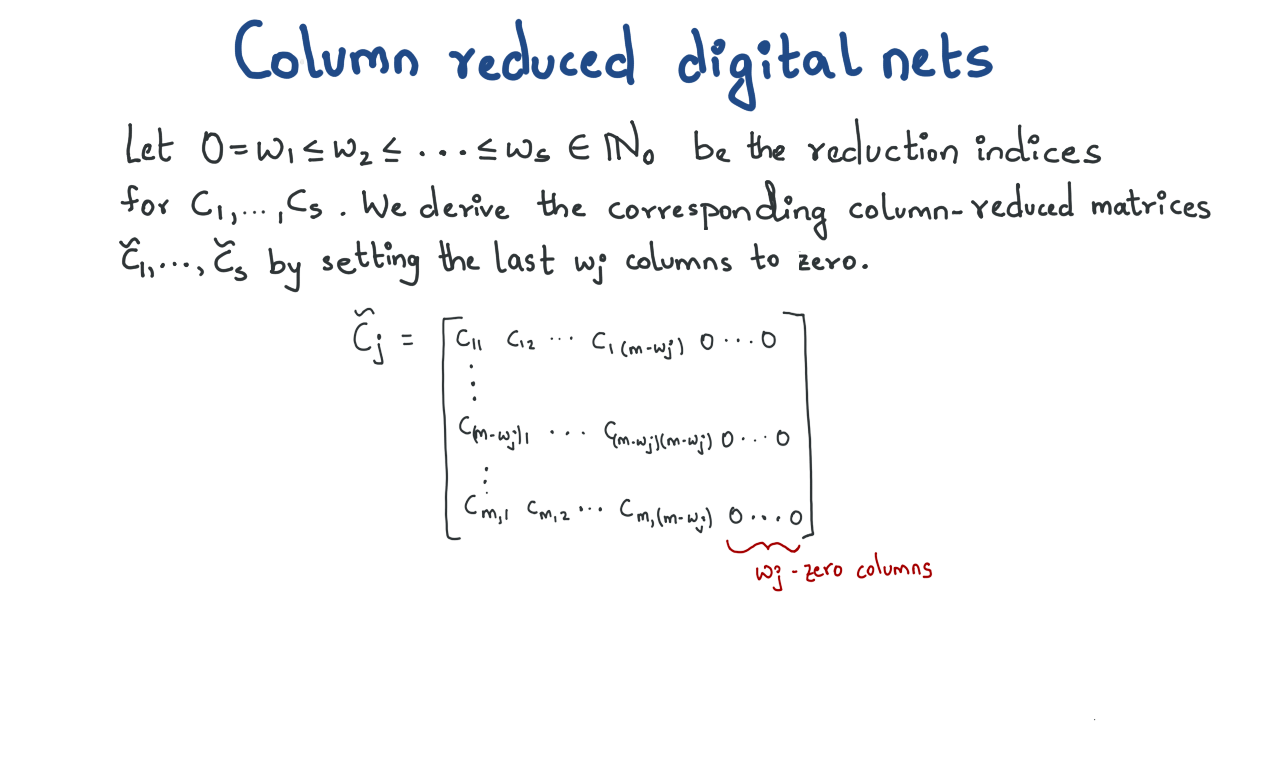 Column reduced digital nets
Let 0=w₁≤w₂≤...≤wₛ ∈ ℕ₀ be the reduction indices
for C₁,...,Cₛ. We derive the corresponding column-reduced matrices
C̆₁,...,C̆ₛ by setting the last wⱼ columns to zero.
C̆ⱼ = [ C₁₁ C₁₂ ... C₁₍ₘ₋wⱼ₎ 0 ... 0
⋮
C₍ₘ₋wⱼ₎₁ ... C₍ₘ₋wⱼ₎₍ₘ₋wⱼ₎ 0 ... 0
⋮
Cₘ,₁ Cₘ,₂ ... Cₘ,₍ₘ₋wⱼ₎ 0 ... 0 ]
wⱼ-zero columns